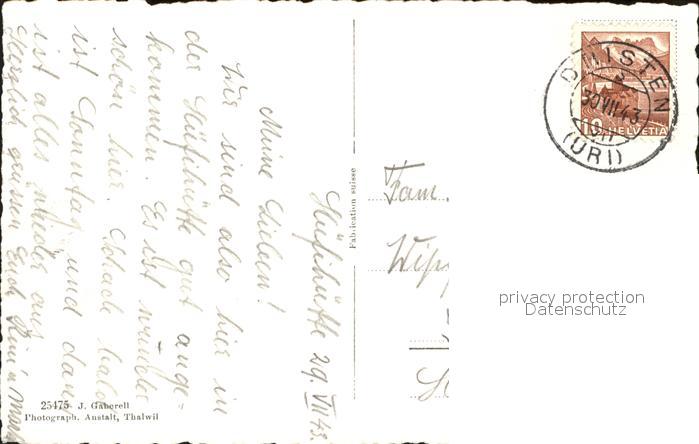 Hüfihütte 29. VII 43.
Meine Lieben!
Wir sind also hier in
der Hüfihütte gut ange-
kommen. Es ist wunder
schön hier. Schade bald
ist Sonntag und dann
ist alles wieder aus
Herzlich grüssen Euch
25475 J. Gaberell
Photograph. Anstalt, Thalwil
Fabrication suisse
Fam.
BRISTEN
30 VII 43
(URI)
10 HELVETIA
privacy protection
Datenschutz